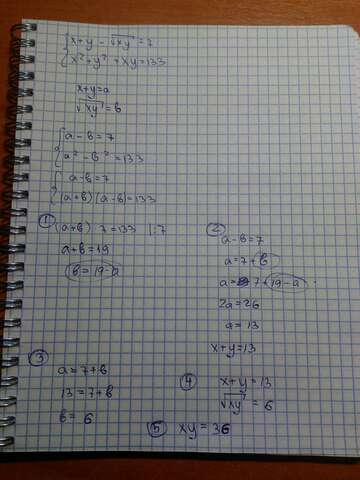 {x+y - √xy = 7
x² + y² + xy = 133
x+y=a
√xy = b
{a - b = 7
a² - b² = 133
{a - b = 7
(a+b)(a-b) = 133
① (a+b) 7 = 133 |:7
a+b = 19
b = 19-a
② a - b = 7
a = 7+b
a = 7+19-a
2a = 26
a = 13
x+y = 13
③ a = 7+b
13 = 7+b
b = 6
④ x+y = 13
√xy = 6
⑤ xy = 36